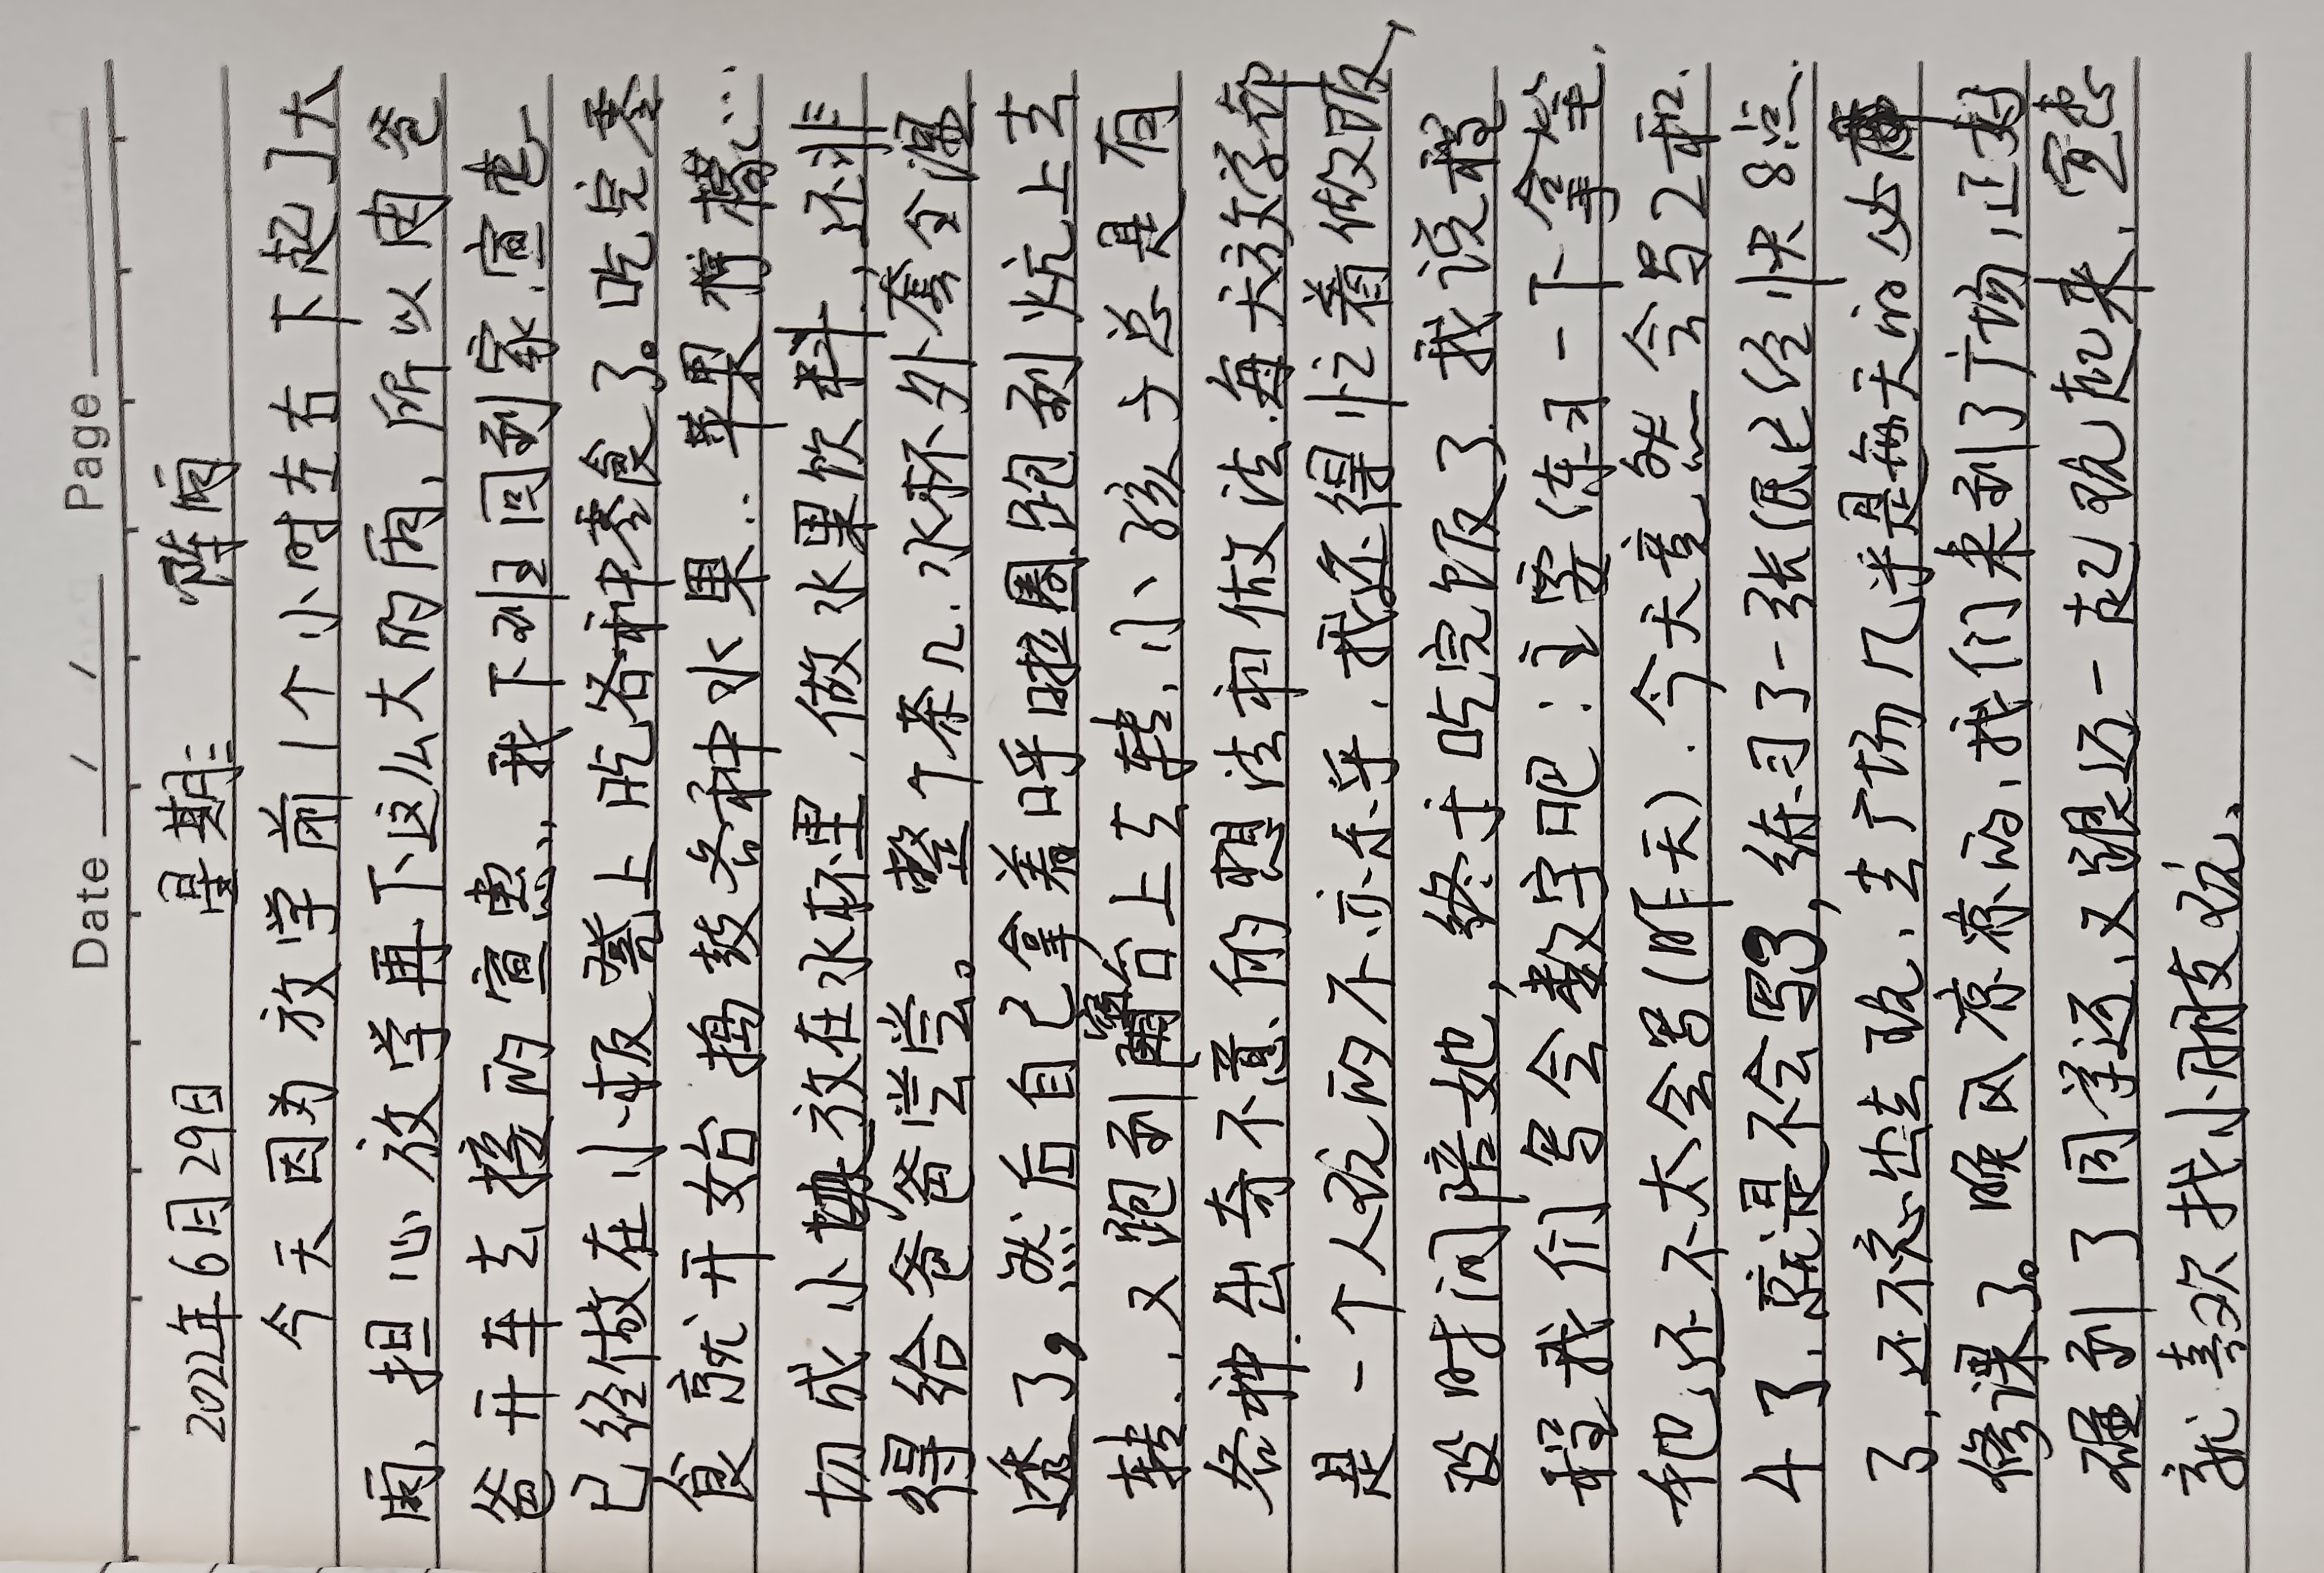 Date / / Page
2022年6月29日 星期三 阵雨
今天因为放学前1个小时左右下起了大
雨、担心放学再下这么大的雨、所以因爸
爸开车去接的宣惠、、我下班回到家.宣惠
已经做在小板凳上吃各种零食了。吃完零
食就开始捣鼓各种水果：苹果柠檬……
切成小块放在水杯里,做水果饮料,还非
得给爸爸尝尝。整个茶几.水杯外套全湿
透了,然后自己拿着呼啦圈跑到炕上去
转、又跑到阳台上去转、小孩子总是有
各种出奇不意的想法和做法.每天放学都
是一个人玩的不亦乐乎.我还得忙着做饭
没时间陪她,终于吃完饭了.我说程
程我们写会数字吧：主要练习一下拿笔.
她还不太会写(昨天).今天竟然会写2和
4了.就是不会写3,练习了一张纸已经快8点
了,还不忘出去玩、去广场几乎是每天的必
修课了。晚风凉凉的、我们来到了广场,正好
碰到了同学迈、又跟迈一起玩起来、宣惠
就喜欢找小朋友玩、